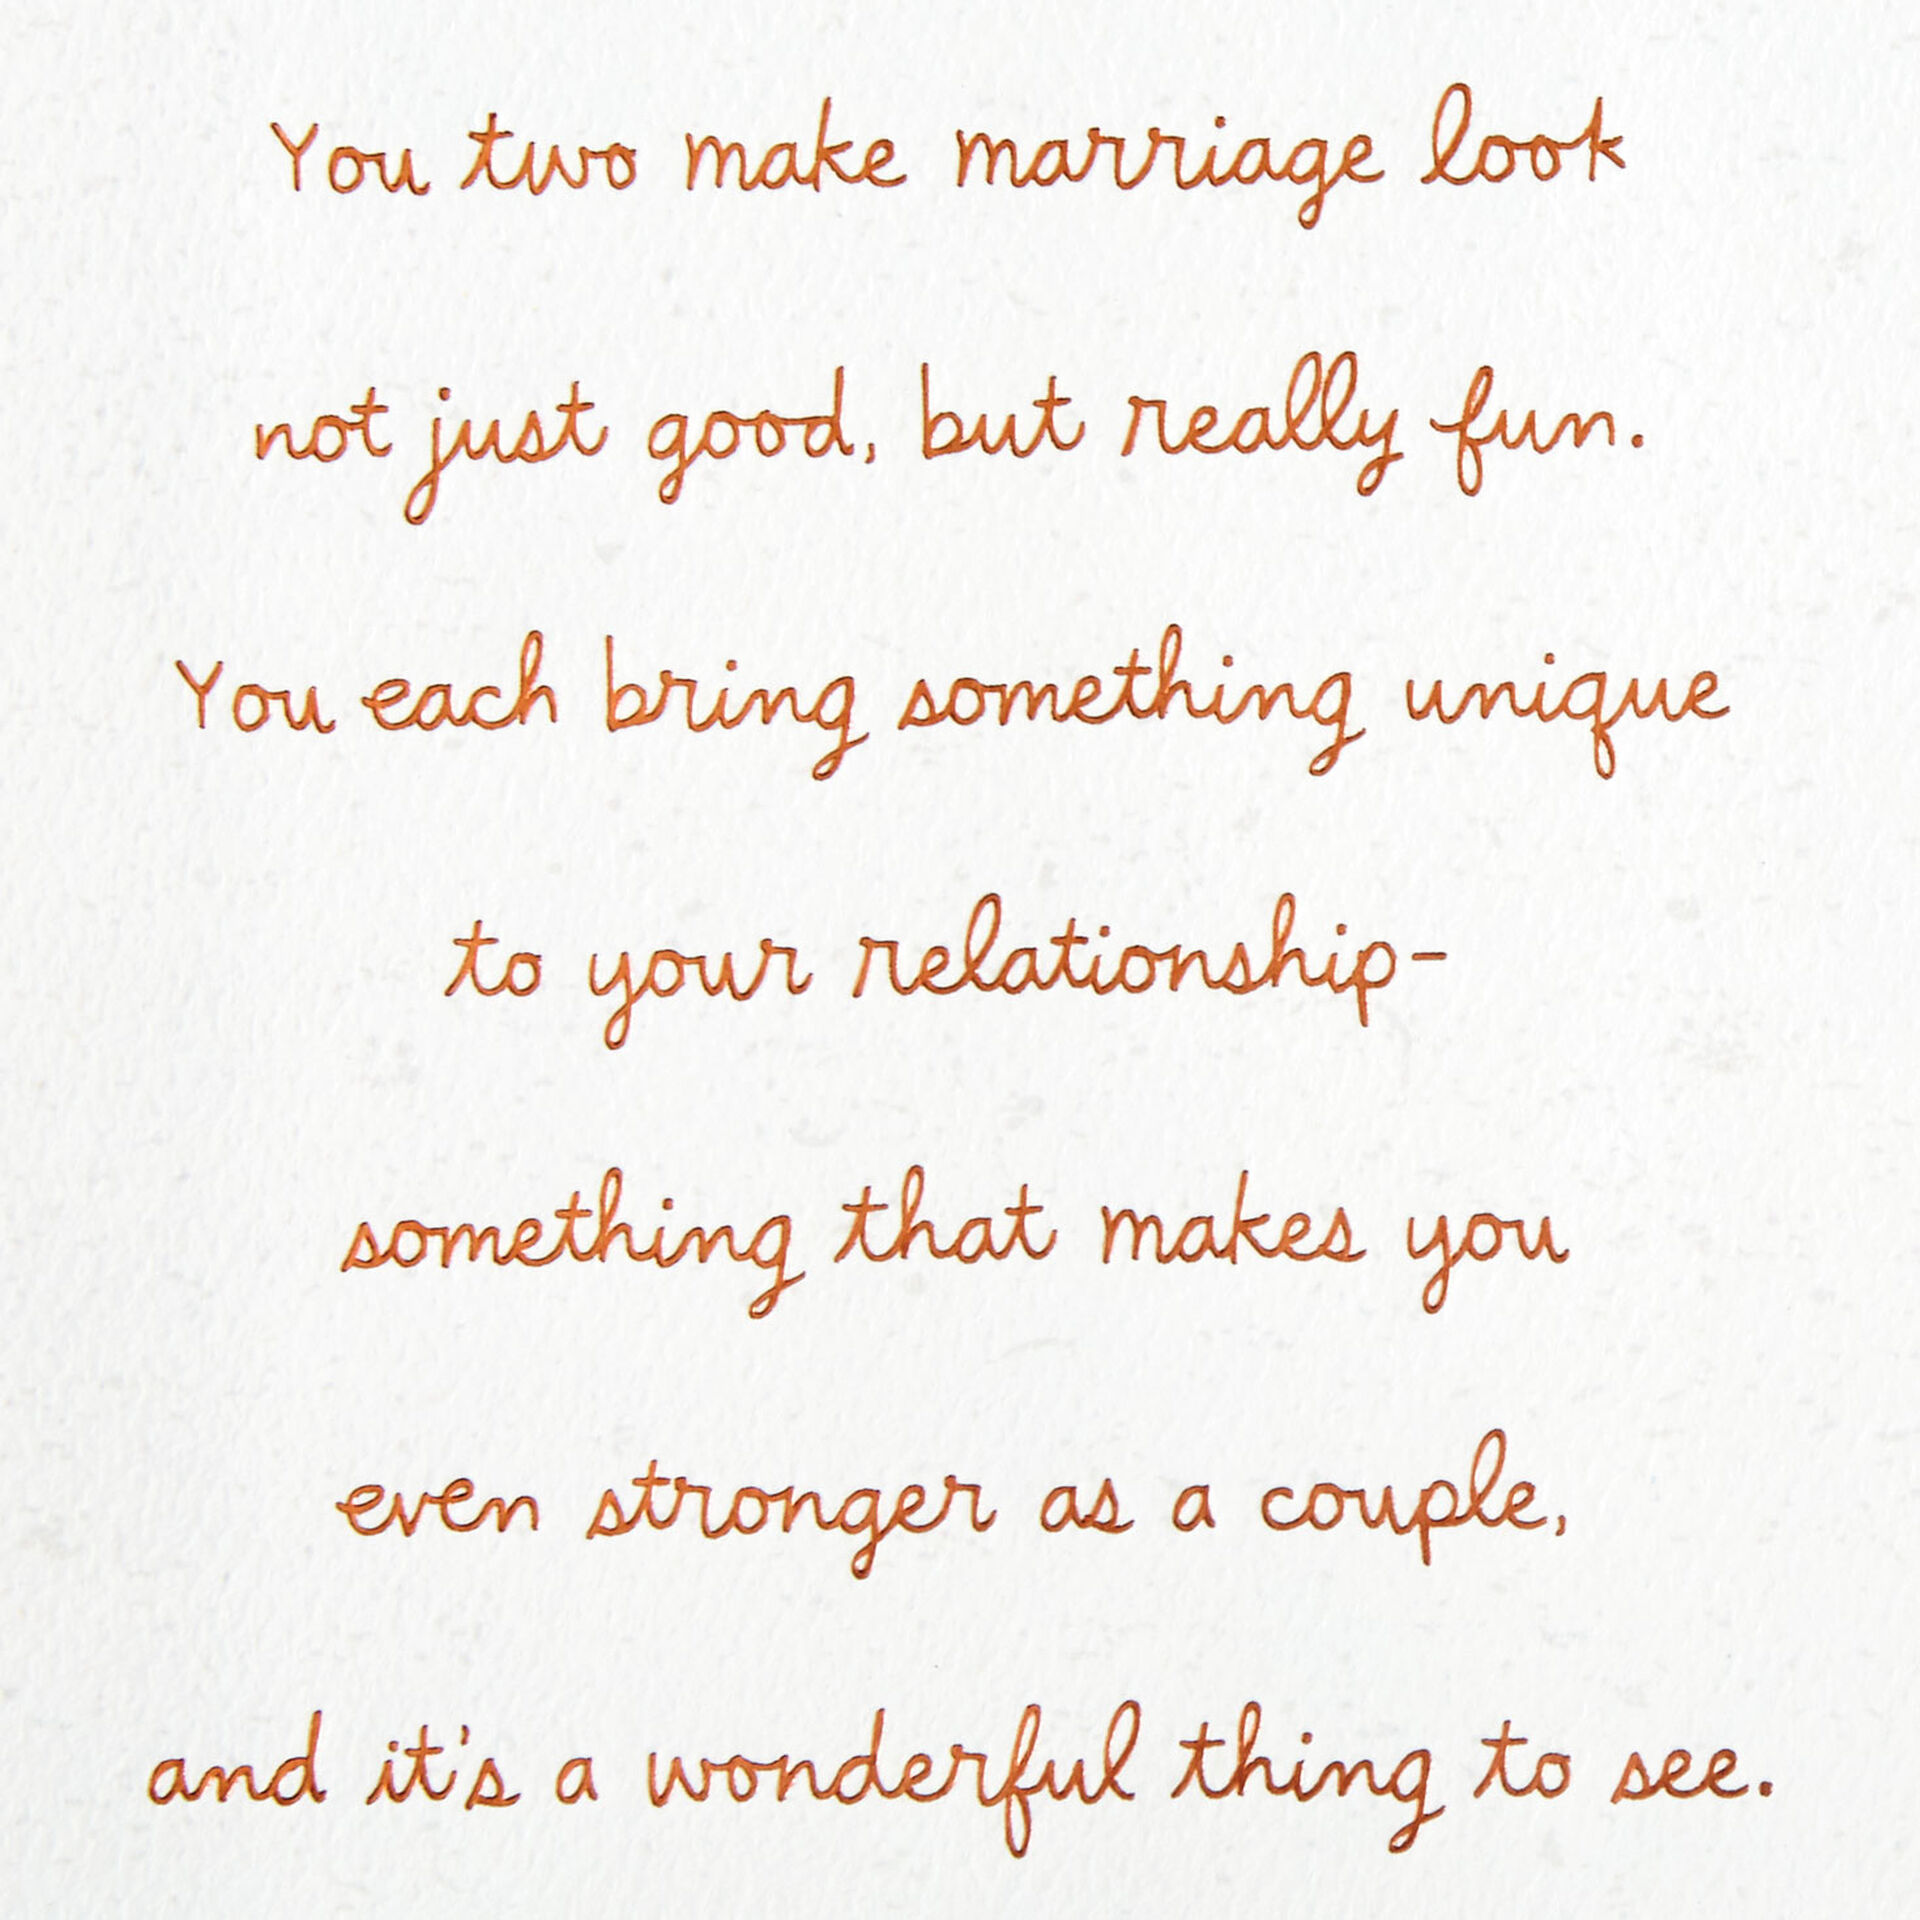 You two make marriage look
not just good, but really fun.
You each bring something unique
to your relationship-
something that makes you
even stronger as a couple,
and it's a wonderful thing to see.